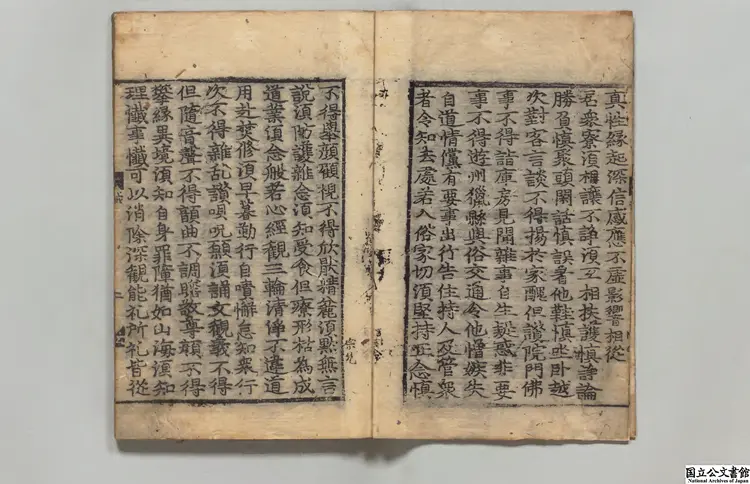 真性緣起深信感應不虛影響相從
居衆寮須相讓不諍須互相扶護慎諍論
勝負慎聚頭閑話慎誤着他鞋慎坐卧越
次對客言談不得揚於家醜但讚院門佛
事不得詣庫房見聞雜事自生疑惑非要
事不得遊州獵縣與俗交通令他憎嫉失
自道情儻有要事出行告住持人及管衆
者令知去處若入俗家切須堅持正念慎
不得舉顔顧視不得欣厭精麁須默無言
說須防護雜念須知受食但療形枯為成
道業須念般若心經觀三輪清淨不違道
用赴焚修須早暮勤行自責懈怠知衆行
次不得雜乱讃唄呪願須誦文觀義不得
但隨音聲不得韻曲不調瞻敬尊顔不得
攀緣異境須知自身罪障猶如山海須知
理懺事懺可以消除深觀能礼所礼皆從
誡 二
国立公文書館
National Archives of Japan